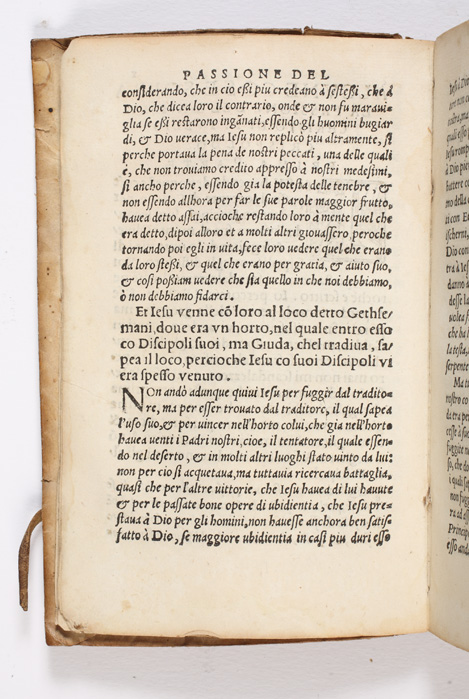 PASSIONE DEL
conſiderando, che in cio eßi piu credeano à ſesteßi, che à
Dio, che dicea loro il contrario, onde & non fu maraui-
glia ſe eßi reſtarono ingãnati, eſſendo gli huomini bugiar
di, & Dio uerace, ma Ieſu non replicò piu altramente, ſi
perche portaua la pena de noſtri peccati, una delle quali
è, che non trouiamo credito appreſſo à noſtri medeſimi,
ſi ancho perche, eſſendo gia la poteſta delle tenebre, &
non eſſendo allhora per far le ſue parole maggior frutto,
hauea detto aſſai, accioche reſtando loro à mente quel che
era detto, dipoi alloro et a molti altri giouaſſero, peroche
tornando poi egli in uita, fece loro uedere quel che erano
da loro ſteßi, & quel che erano per gratia, & aiuto ſuo,
& coſi poßiam uedere che ſia quello in che noi debbiamo,
ò non debbiamo fidarci.
Et Ieſu venne cõ loro al loco detto Gethſe-
mani, doue era vn horto, nel quale entro eſſo
co Diſcipoli ſuoi, ma Giuda, chel tradiua, ſa-
pea il loco, percioche Ieſu co ſuoi Diſcipoli vi
era ſpeſſo venuto.
NOn andò adunque quiui Ieſu per fuggir dal tradito-
re, ma per eſſer trouato dal traditore, il qual ſapea
l'uſo ſuo, & per uincer nell'horto colui, che gia nell'horto
hauea uenti i Padri noſtri, cioe, il tentatore, il quale eſſen-
do nel deſerto, & in molti altri luoghi ſtato uinto da lui:
non per cio ſi acquetaua, ma tuttauia ricercaua battaglia,
quaſi che per l'altre uittorie, che Ieſu hauea di lui hauute
& per le paſſate bone opere di ubidientia, che Ieſu pre-
ſtaua à Dio per gli homini, non haueſſe anchora ben ſatiſ-
fatto à Dio, ſe maggiore ubidientia in caſi piu duri eſſo